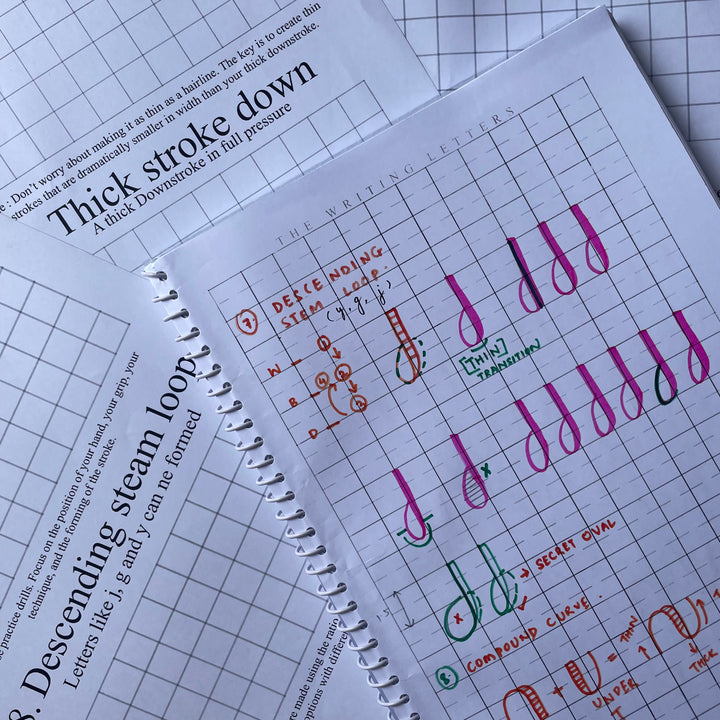 e : Don't worry about making it as thin as a hairline. The key is to create thin
strokes that are dramatically smaller in width than your thick downstroke.
Thick stroke down
A thick Downstroke in full pressure
THE WRITING LETTERS
7 DESCENDING
STEM LOOP.
(y, g, j)
W - 1
B - 4 2
D - 3
[THIN]
TRANSITION
x
x
→ SECRET OVAL
8 COMPOUND CURVE.
+ = THIN
UNDER
THICK
practice drills. Focus on the position of your hand, your grip, your
technique, and the forming of the stroke.
8. Descending steam loop
Letters like j, g and y can ne formed
re made using the ratio
options with different